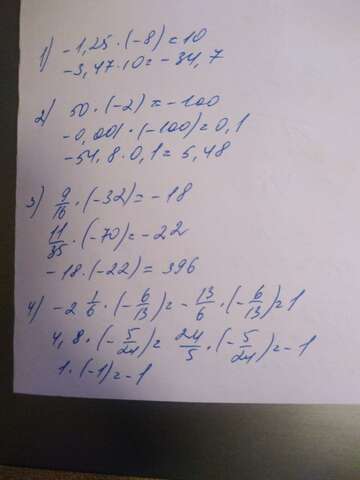 1) -1,25·(-8)=10
-3,47·10=-34,7
2) 50·(-2)=-100
-0,001·(-100)=0,1
-54,8·0,1=5,48
3) 9/16·(-32)=-18
11/35·(-70)=-22
-18·(-22)=396
4) -2 1/6·(-6/13)=-13/6·(-6/13)=1
4,8·(-5/24)=24/5·(-5/24)=-1
1·(-1)=-1